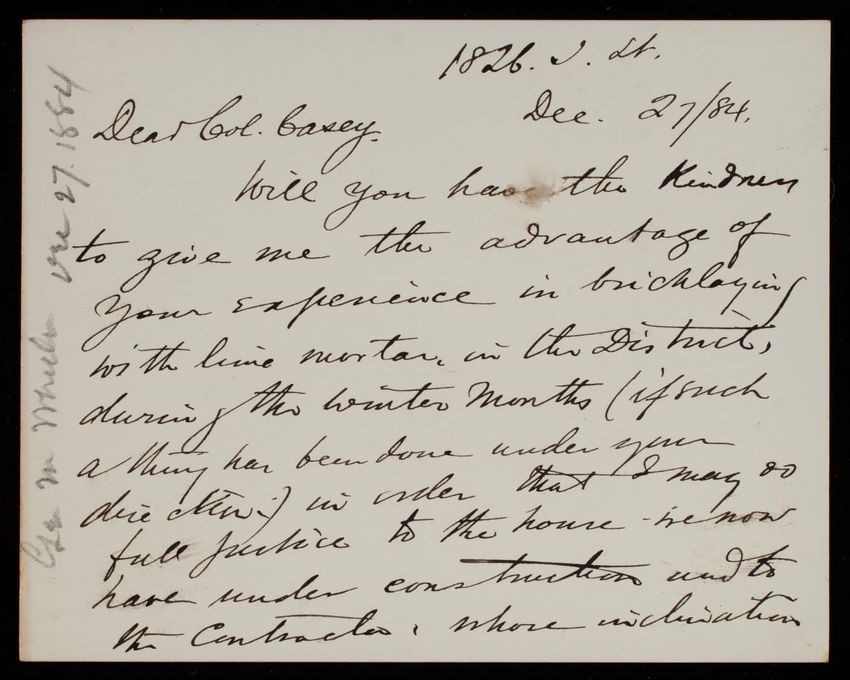 1826. I. St.
Dec. 27/84.
Dear Col. Casey.
Will you have the Kindness
to give me the advantage of
your experience in bricklaying
with lime mortar, in the District,
during the Winter Months (if such
a thing has been done under your
direction:) in order that I may do
full justice to the house we now
have under construction and to
the Contractor, whose inclination
Geo M Wheeler Dec 27. 1884